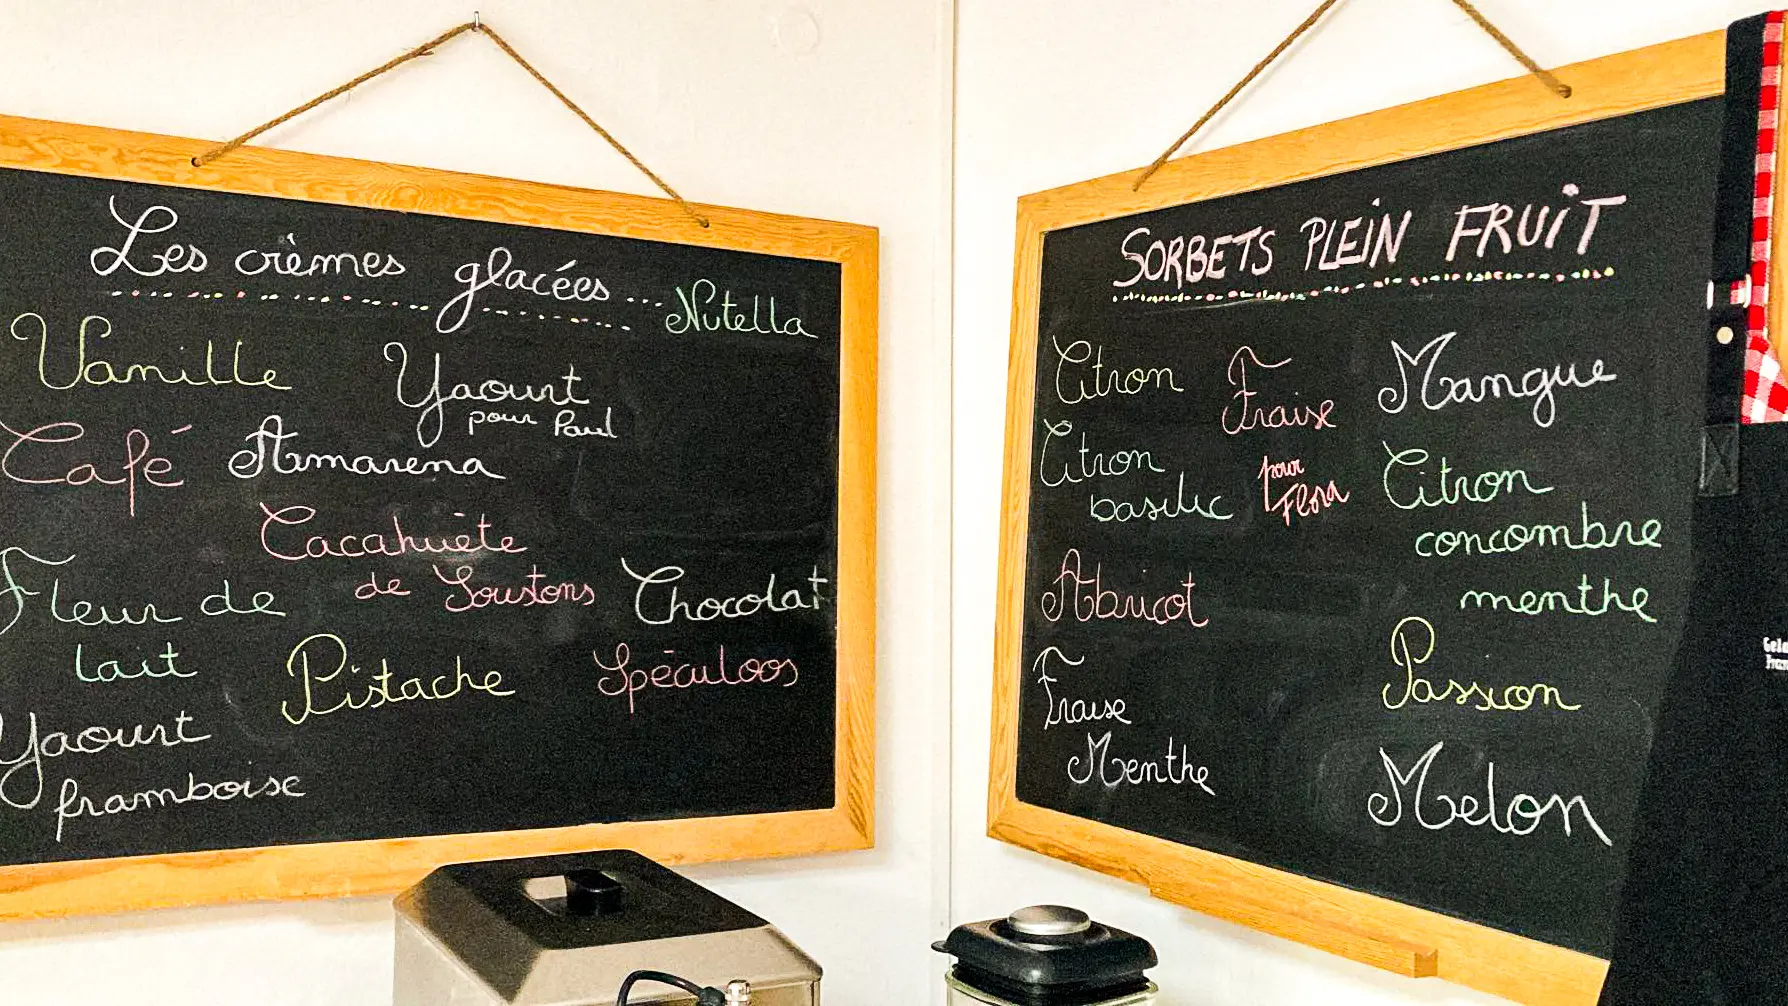 Les crèmes glacées...
Nutella
Vanille
Yaourt
pour Paul
Café
Amarena
Cacahuète
de Soustons
Fleur de
lait
Chocolat
Pistache
Spéculoos
Yaourt
framboise
SORBETS PLEIN FRUIT
Citron
Fraise
pour
Flora
Mangue
Citron
basilic
Citron
concombre
menthe
Abricot
Passion
Fraise
Menthe
Melon